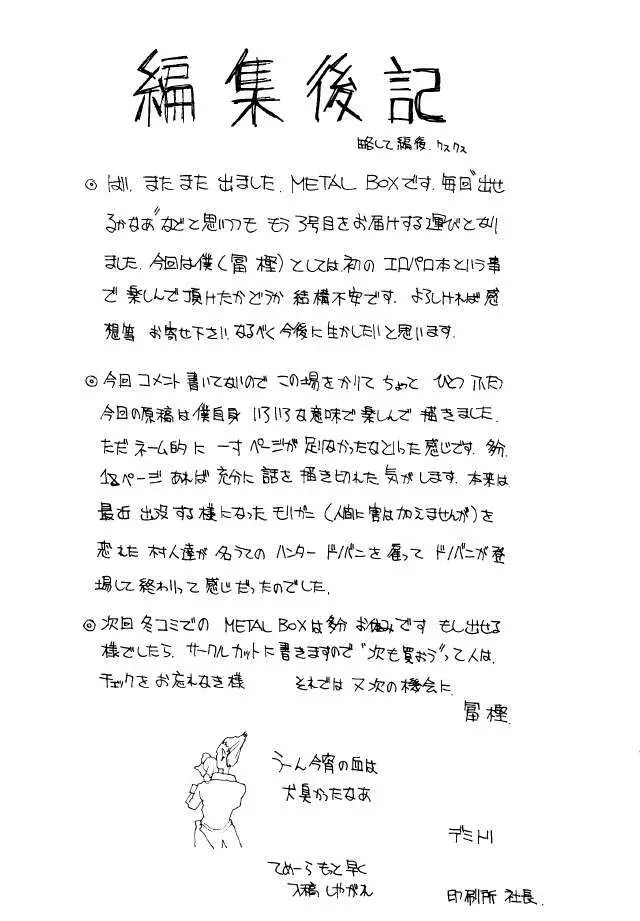 編集後記
略して編後.クスクス
◎ はい、またまた出ました.METAL BOXです.毎回"出せ
るかなあ"などと思いつつも もう3号目をお届けする運びとなり
ました.今回は僕(冨樫)としては.初の エロパロ本という事
で 楽しんで頂けたかどうか 結構不安です. よろしければ感
想等 お寄せ下さい.なるべく今後に生かしたいと思います.
◎ 今回コメント書いてないので この場をかりて ちょっと ひとつ ふたつ
今回の原稿は僕自身 いろいろな意味で楽しんで 描きました.
ただ ネーム的に 一寸 ページが足りなかったなといった感じです. 多分.
12ページ あれば 充分に 話を 描き切れた 気がします.本来は
最近 出没 する様になった モリガン(人間に害は加えませんが)を
恐れた 村人達が 名うての ハンター ドノバンを 雇って ドノバンが登
場して 終わりって感じだったのでした.
◎ 次回 冬コミでの METAL BOXは多分 お休みです もし出せる
様でしたら. サークルカットに書きますので"次も買おう"って人は.
チェックをお忘れなき様 それでは 又次の機会に.
冨樫.
うーん今宵の血は
犬臭かったなあ
デミトリ
てめーら もっと早く
入稿しやがれ
印刷所 社長.